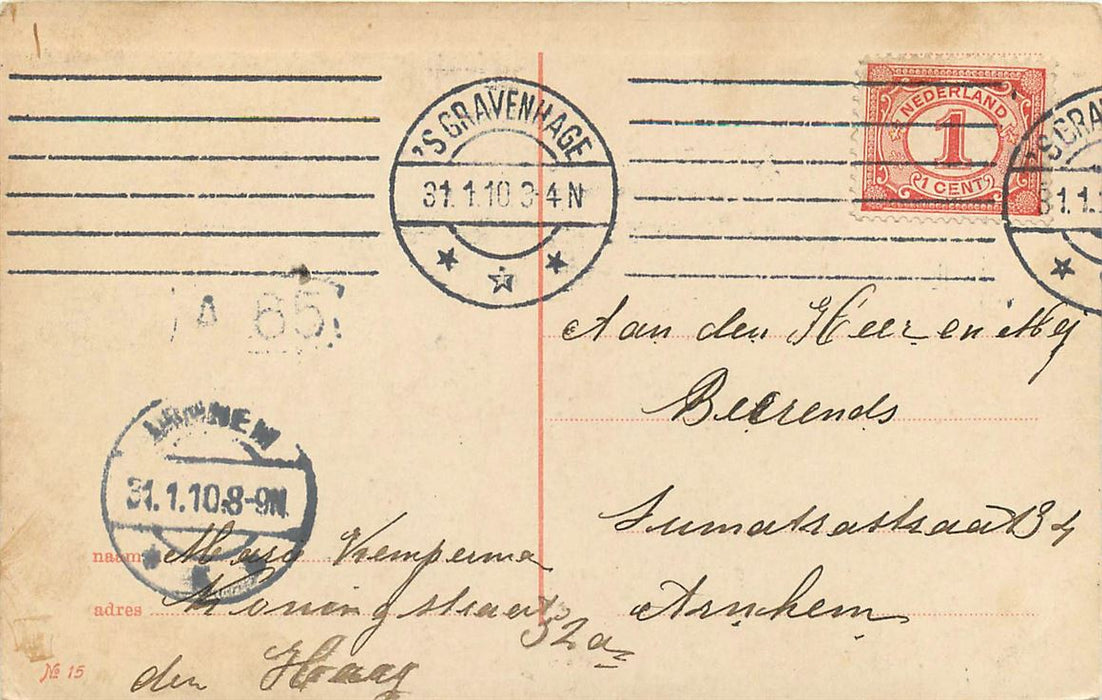 'S GRAVENHAGE
31.1.10 3-4N
NEDERLAND
1
1 CENT
'SGRA
31.1.1
A 65
Aan den Heer en Mej
Beerends
Sumatrastraat 34
Arnhem
ARNHEM
31.1.10.8-9N
naam Marie Kemperma
adres Koningstraat
52a
den Haag
№ 15